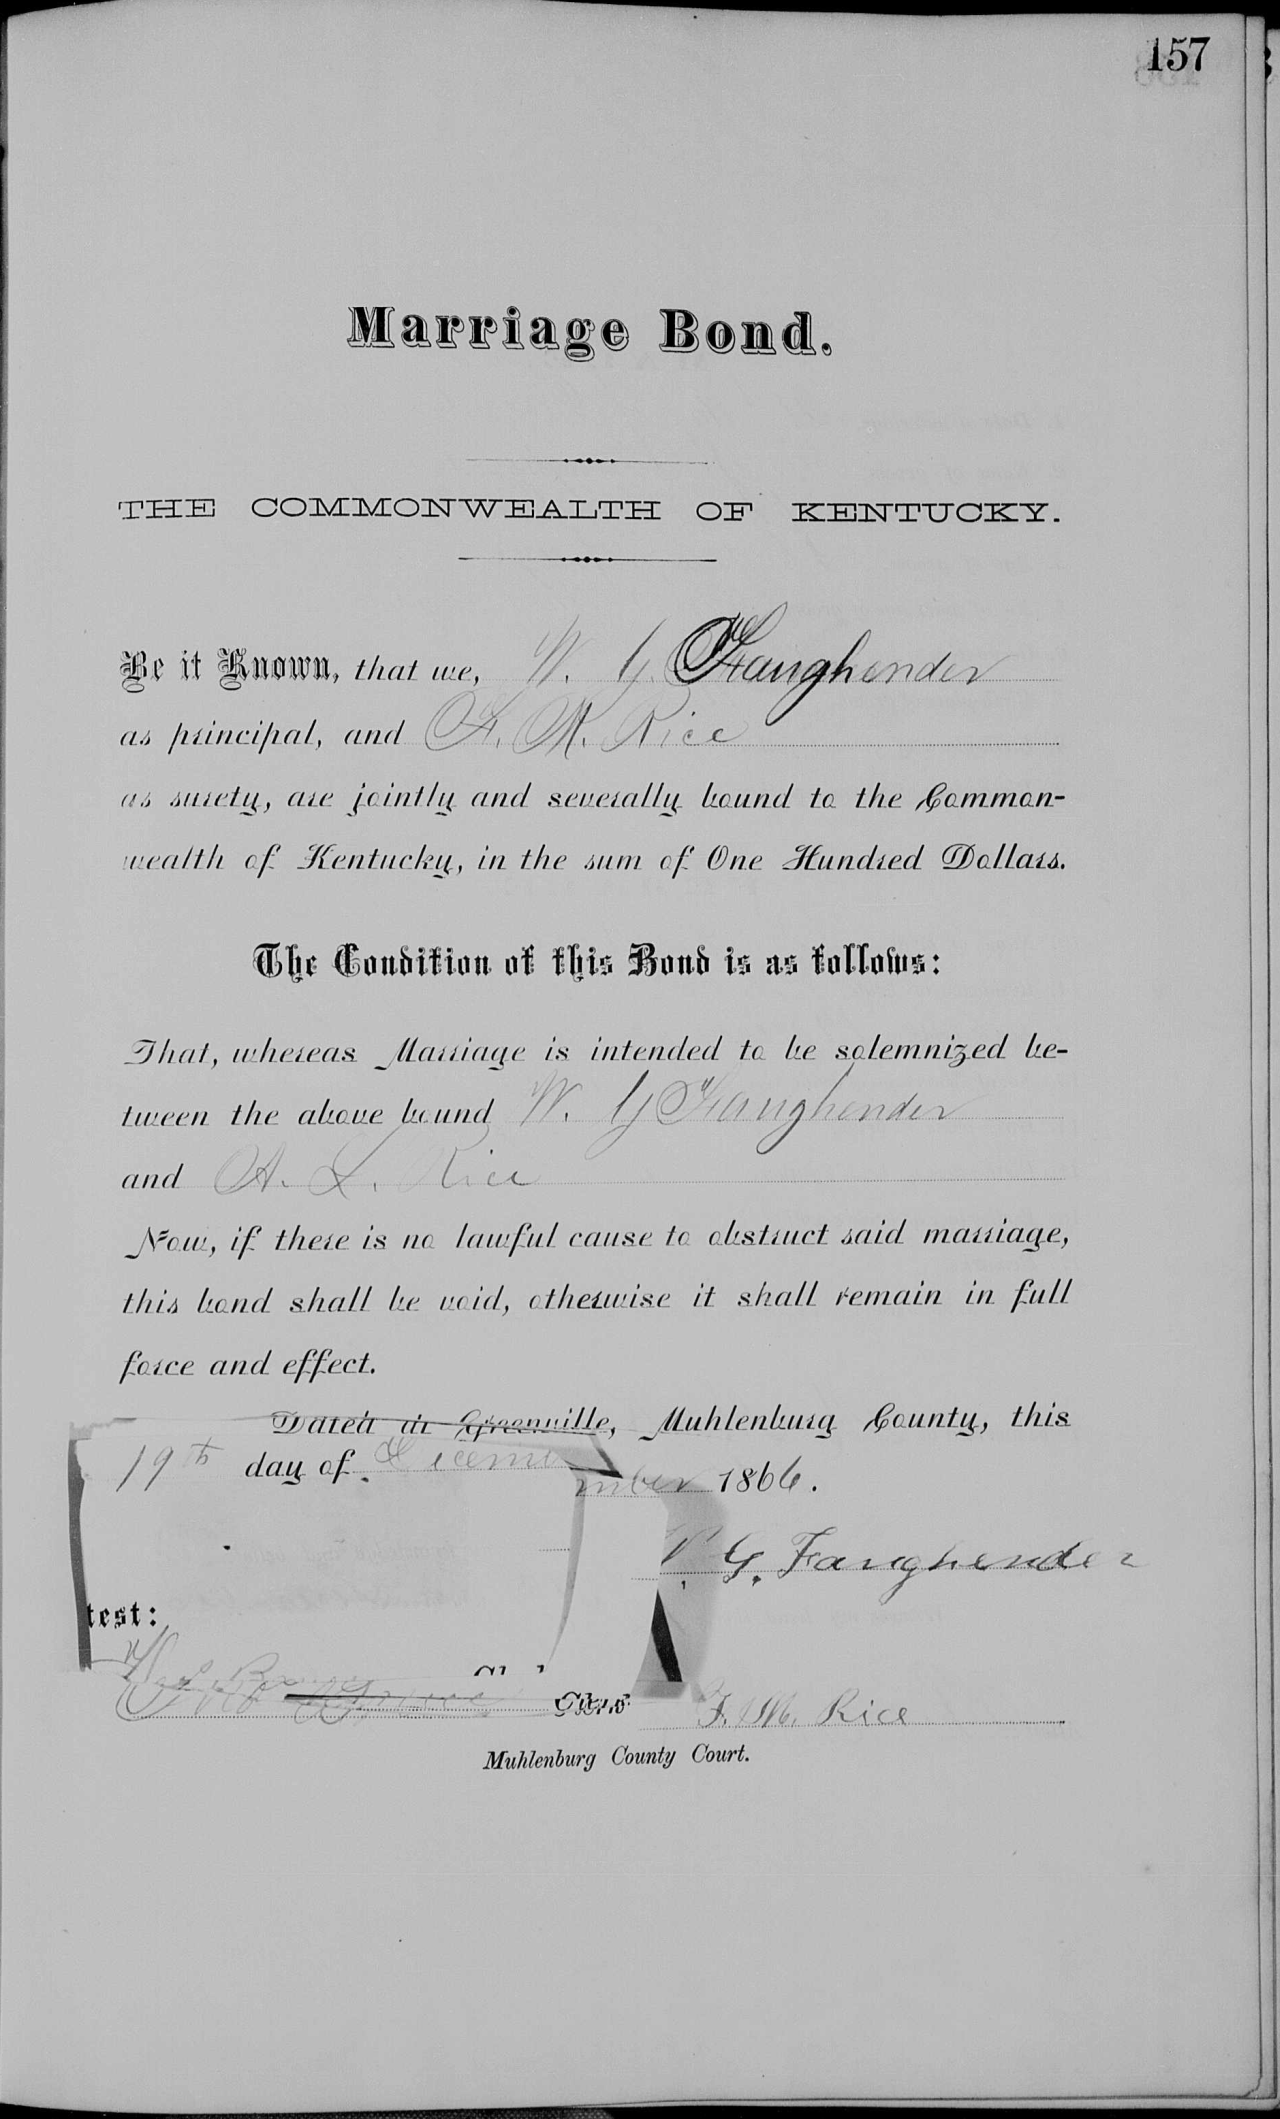 157
Marriage Bond.
THE COMMONWEALTH OF KENTUCKY.
Be it Known, that we, W. G. Faughender
as principal, and F. M. Rice
as surety, are jointly and severally bound to the Common-
wealth of Kentucky, in the sum of One Hundred Dollars.
The Condition of this Bond is as follows:
That, whereas Marriage is intended to be solemnized be-
tween the above bound W. G Faughender
and A. L. Rice
Now, if there is no lawful cause to obstruct said marriage,
this bond shall be void, otherwise it shall remain in full
force and effect.
Dated at Greenville, Muhlenburg County, this
19th day of December 1866.
G. Faughender
test:
Clerk F. M. Rice
Muhlenburg County Court.